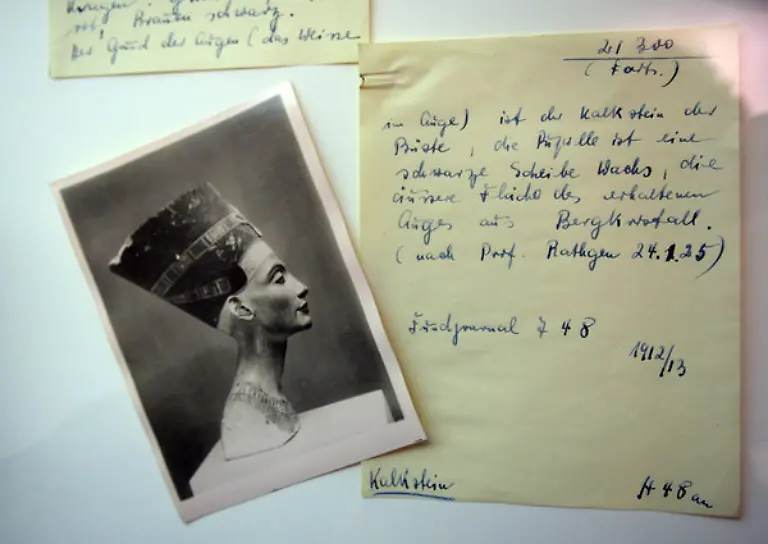 rot! Brauen schwarz.
Der Grund der Augen (das Weisse
21 300
(Forts.)
im Auge) ist der Kalkstein der
Büste, die Pupille ist eine
schwarze Scheibe Wachs, die
äussere Schicht des erhaltenen
Auges aus Bergkristall.
(nach Prof. Rathgen 24.1.25)
Fundjournal 748
1912/13
Kalkstein
H 48 cm